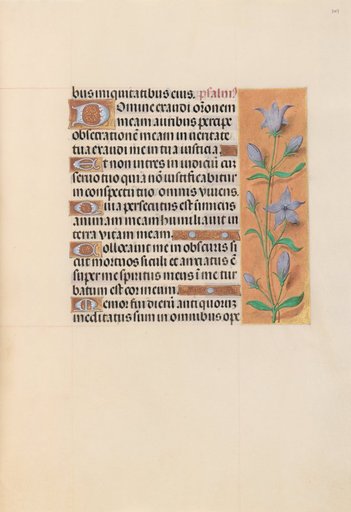 bus iniquitatibus eius. psalm9
Domine exaudi orõnem
meam auribus percipe
obsecrationẽ meam in ueritate
tua exaudi me in tua iusticia.
Et non intres in iudiciũ cũ
seruo tuo quia nõ iustificabitur
in conspectu tuo omnis viuens.
Quia persecutus est inimicus
animam meam humiliauit in
terra vitam meam.
Collocauit me in obscuris si
cut mortuos seculi et anxiatus ẽ
super me spiritus meus ĩ me tur
batum est cor meum.
Memor fui dierũ antiquorũ
meditatus sum in omnibus ope